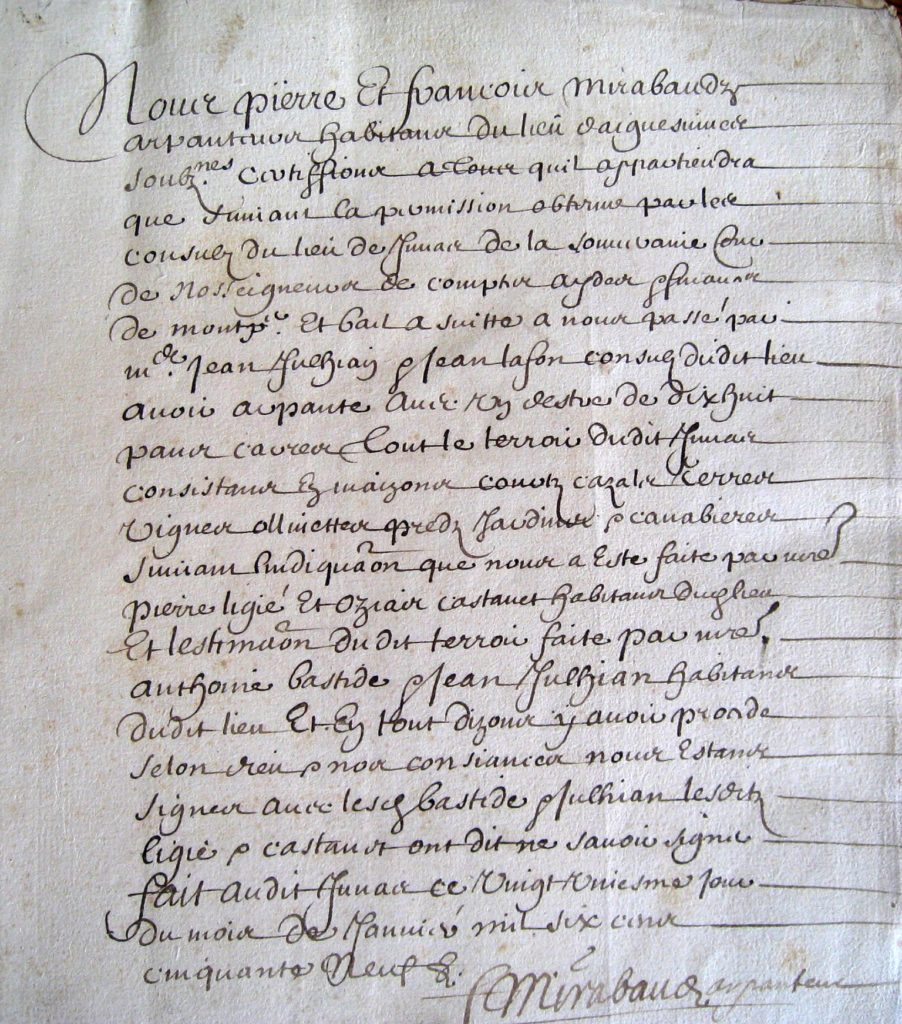 Nous pierre Et françois mirabaudz
arpanteurs habitans du lieu daiguesvives
soubz.nes Certiffions a tous quil appartiendra
que suivant la permission obtenue par les
consulz du lieu de Junas de la souveraine Cour
de Nosseigneurs de comptes aydes & finances
de montp.er Et bail a suitte a nous passé par
m.es Jean Julhian & Jean lafon consulz dudit lieu
avoir arpanté avec un destre de dixhuit
pans carres tout le terroir dudit Junas
consistans en maizons courtz cazals terres
vignes ollivettes predz Jardins & canabieres
suivant lindiquaon que nous a Esté faite par mres
pierre ligié Et ozias castanet habitans dud lieu
Et lestimaon du dit terroir faite par mres
anthoine bastide & Jean Julhian habitans
dudit lieu Et En tout dizons y avoir procede
selon dieu & nos consiances nous Estans
signes avec lesd bastide & Julhian lesditz
ligié & castanet ont dit ne savoir signer
fait audit Junas ce vingt uniesme jour
du mois de Janvier mil six cens
cinquante Neuf &.
Mirabaud arpanteur